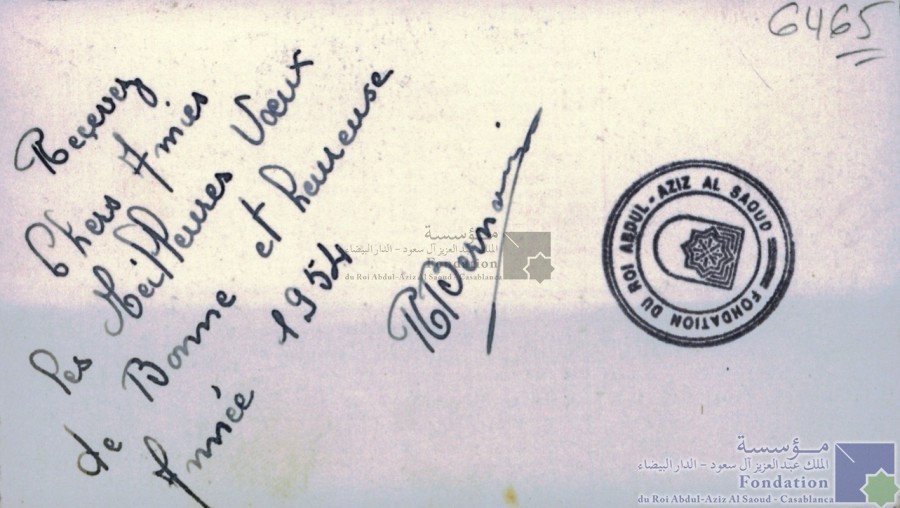 6465
Recevez
Chers Amies
les Meilleures Vœux
de Bonne et heureuse
Année 1954
FONDATION DU ROI ABDUL-AZIZ AL SAOUD
مؤسسة
الملك عبد العزيز آل سعود - الدار البيضاء
Fondation
du Roi Abdul-Aziz Al Saoud - Casablanca
مؤسسة
الملك عبد العزيز آل سعود - الدار البيضاء
Fondation
du Roi Abdul-Aziz Al Saoud - Casablanca